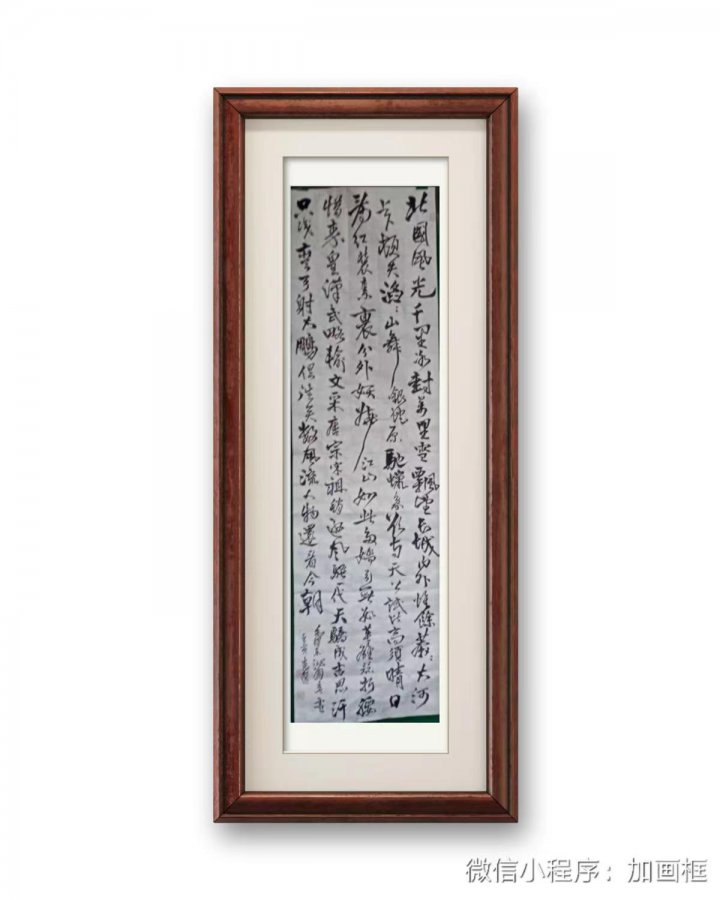 北國風光千里冰封万里雪飄望長城内外惟餘莽〻大河
上下頓失滔〻山舞銀蛇原馳蠟象欲与天公試比高須晴日
看红裝素裹分外妖嬈江山如此多嬌引無數英雄競折腰
惜秦皇漢武略輸文采唐宗宋祖稍遜風騷一代天驕成吉思汗
只识彎弓射大鵰俱往矣數風流人物還看今朝
毛泽东沁園春雪
微信小程序：加画框